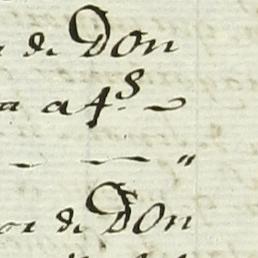 de Don
a 4s
"
de Don